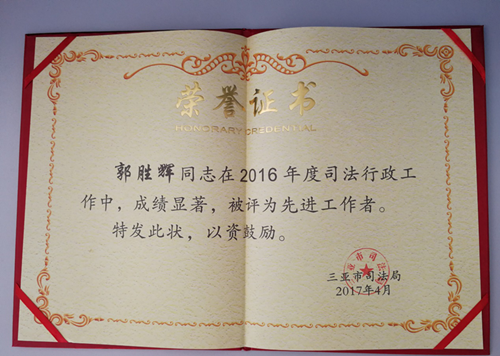 荣誉证书
HONORARY CREDENTIAL
郭胜辉同志在2016年度司法行政工
作中，成绩显著，被评为先进工作者。
特发此状，以资鼓励。
三亚市司法局
三亚市司法局
2017年4月